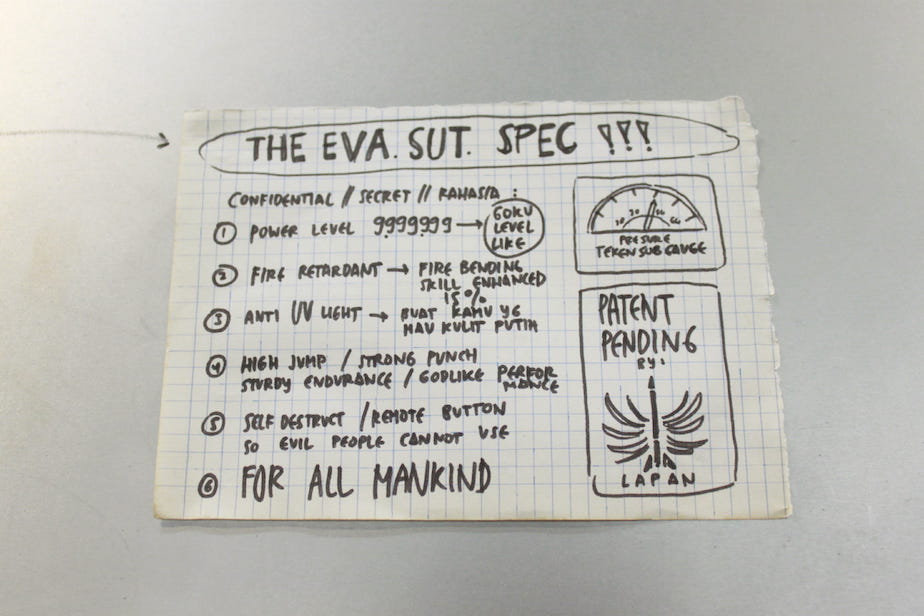 THE EVA. SUT. SPEC !!!
CONFIDENTIAL // SECRET // RAHASIA :
① POWER LEVEL 9999999 → GOKU LEVEL LIKE
② FIRE RETARDANT → FIRE BENDING
SKILL ENHANCED
15%
③ ANTI UV LIGHT → BUAT KAMU YG
MAU KULIT PUTIH
④ HIGH JUMP / STRONG PUNCH
STURDY ENDURANCE / GODLIKE PERFOR
MANCE
⑤ SELF DESTRUCT / REMOTE BUTTON
SO EVIL PEOPLE CANNOT USE
⑥ FOR ALL MANKIND
PRESURE
TEKEN SUB GAUGE
PATENT
PENDING
BY:
LAPAN